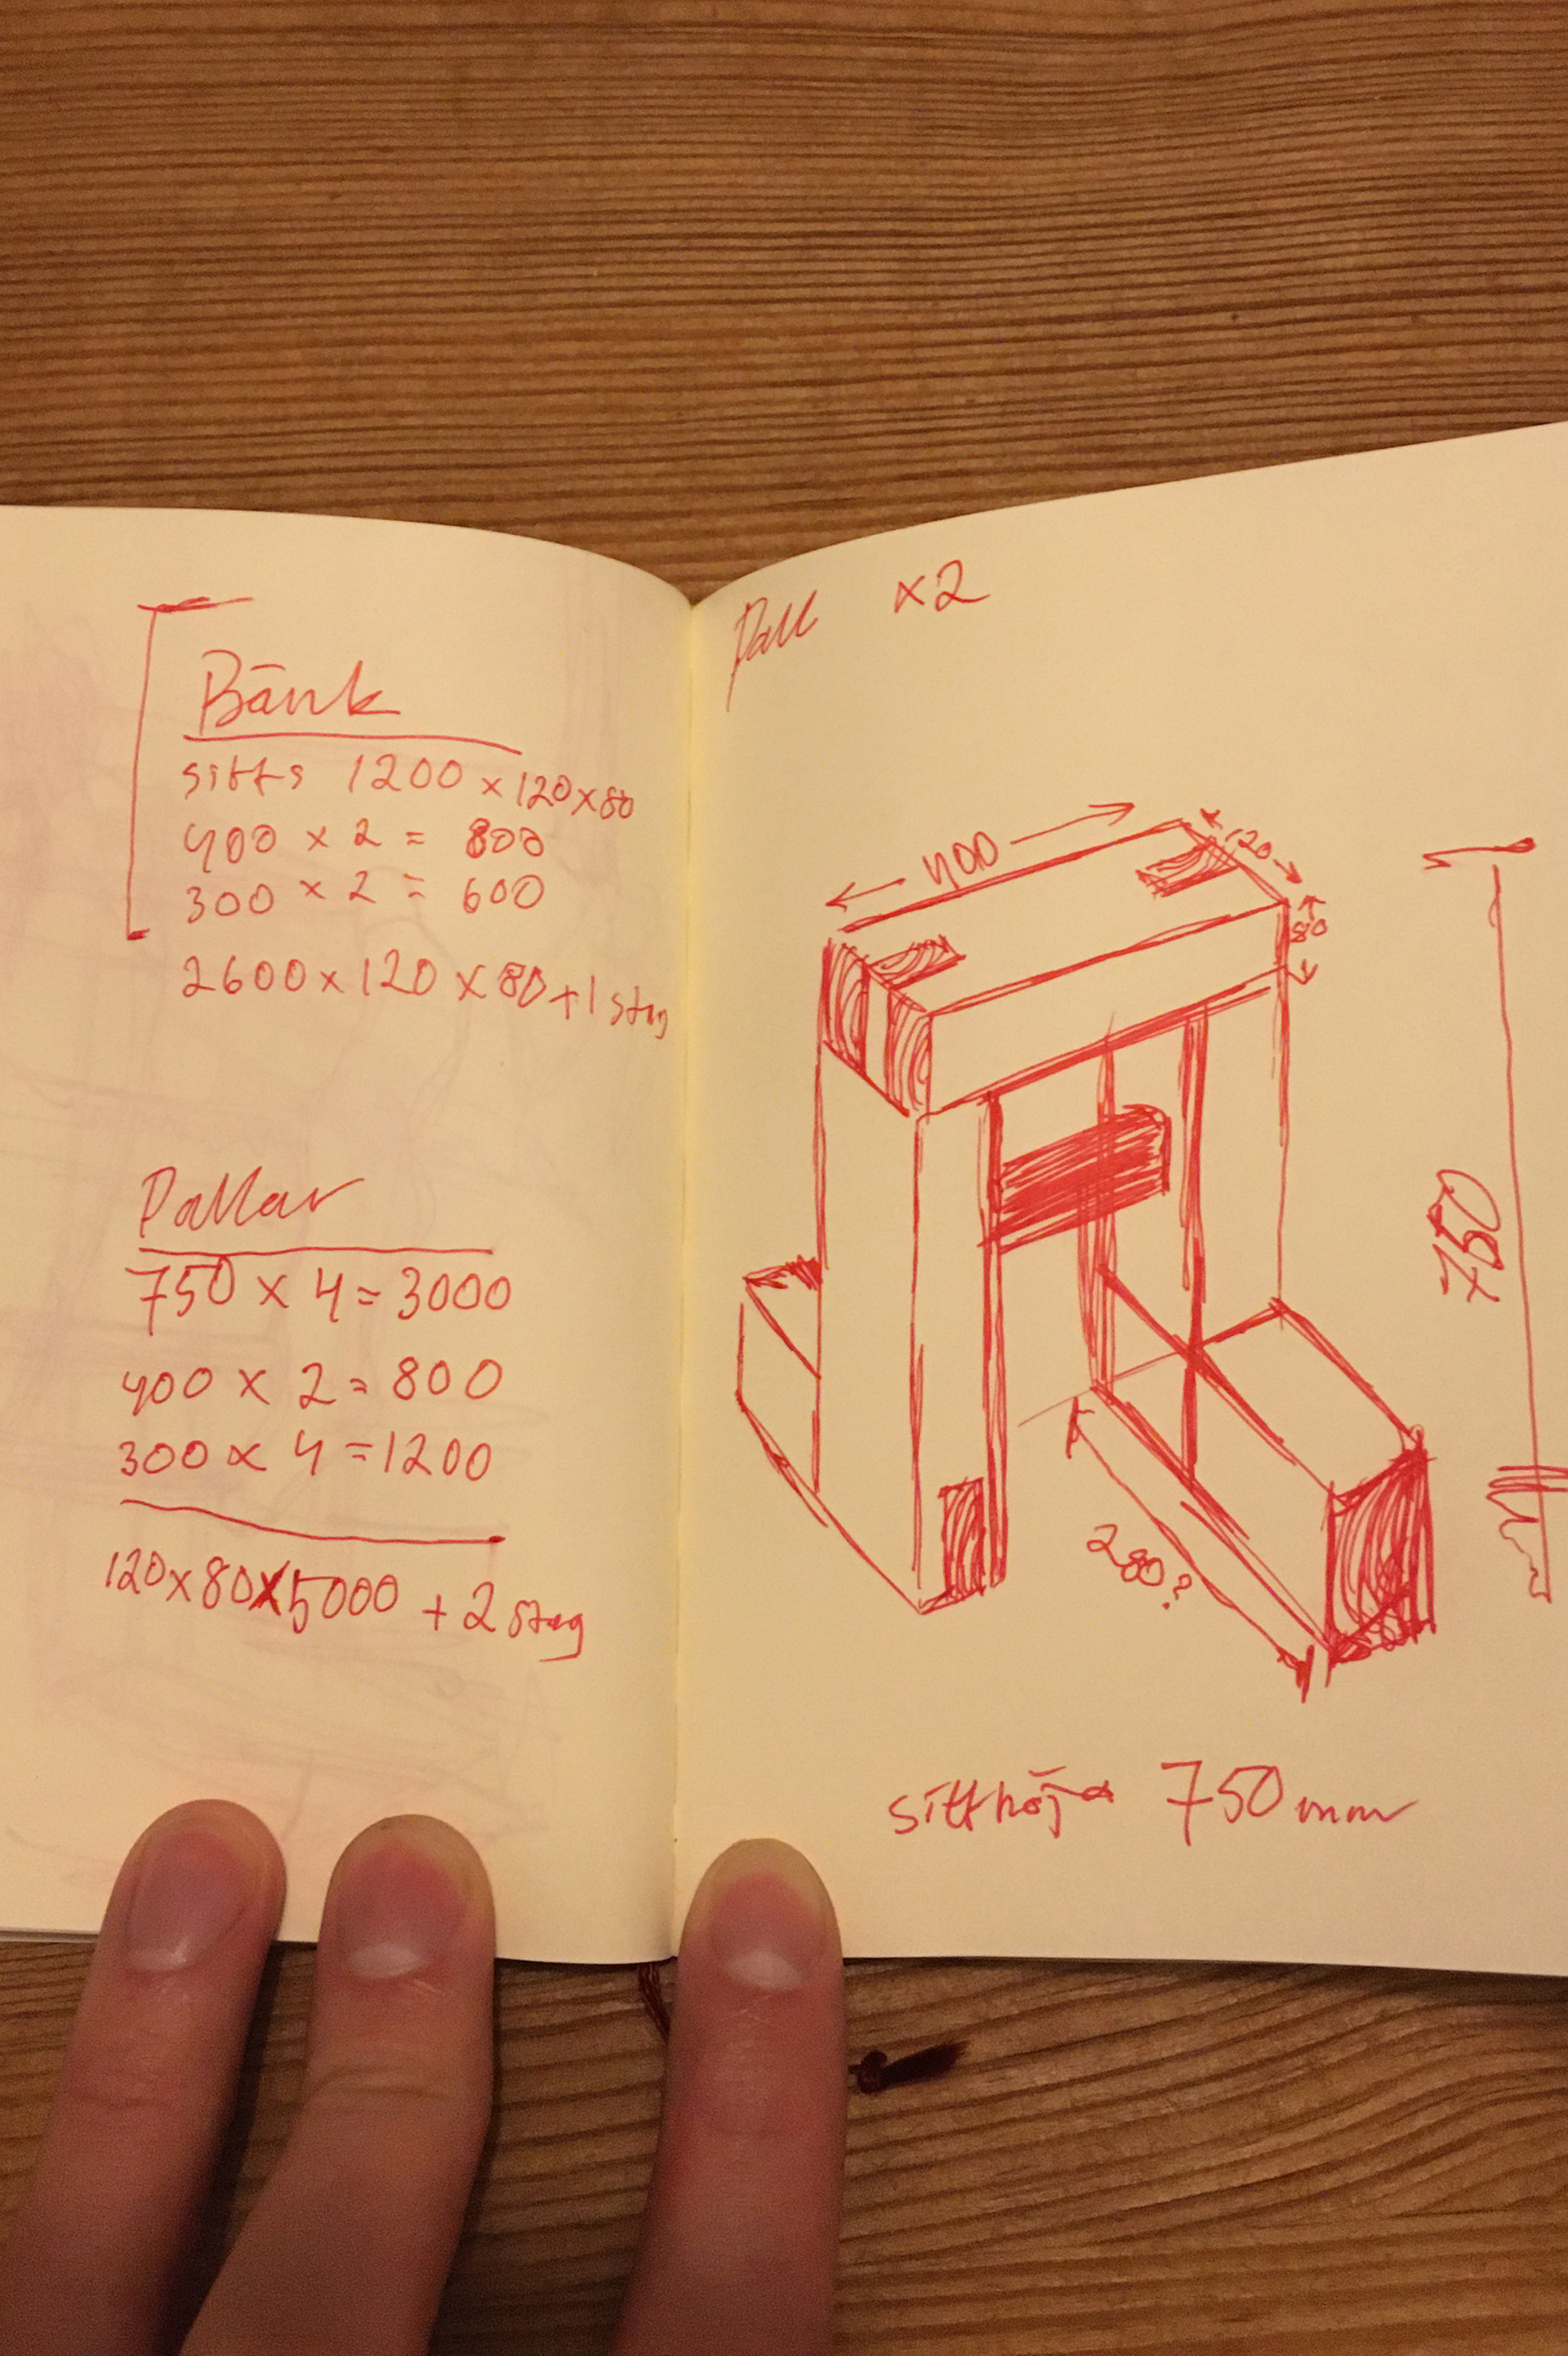 Bänk
sitts 1200 x 120 x 80
400 x 2 = 800
300 x 2 = 600
2600 x 120 x 80 + 1 stag
Pallar
750 x 4 = 3000
400 x 2 = 800
300 x 4 = 1200
120 x 80 x 5000 + 2 stag
Pall x2
400
120
80
750
280?
sitthöjd 750 mm